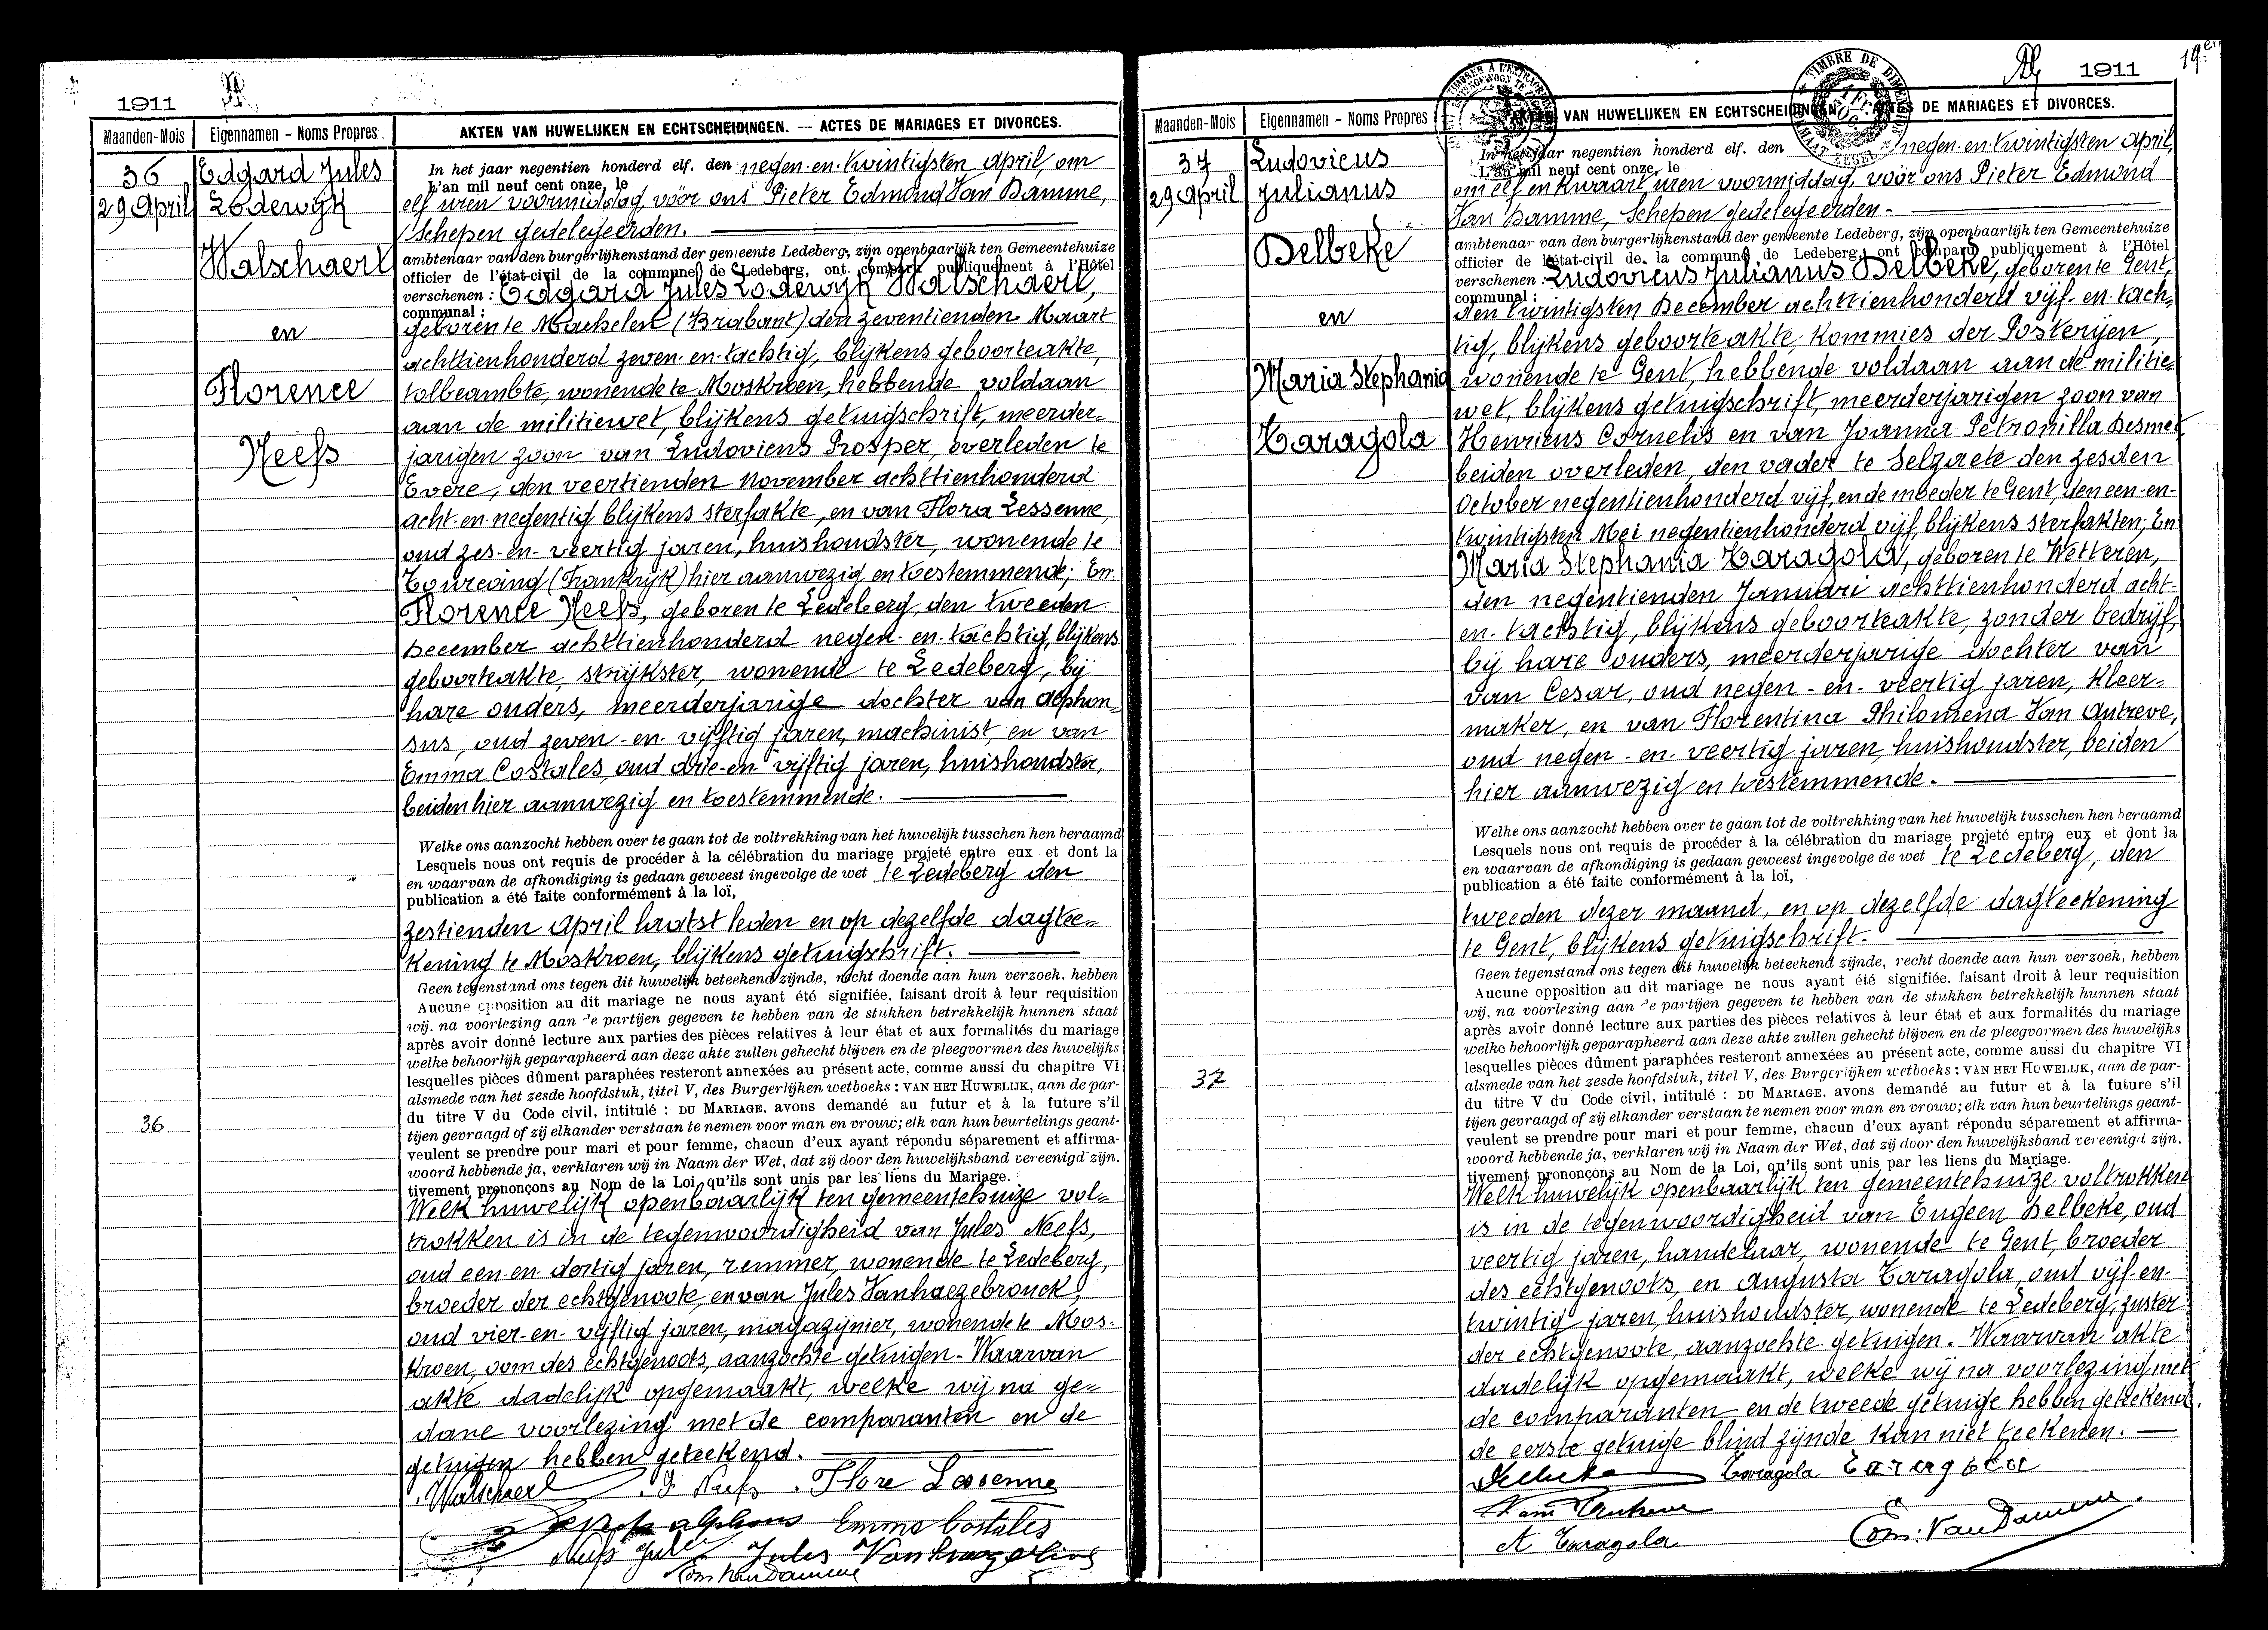 1911
Maanden-Mois
Eigennamen - Noms Propres
AKTEN VAN HUWELIJKEN EN ECHTSCHEIDINGEN. — ACTES DE MARIAGES ET DIVORCES.
36
29 April
Edgard Jules
Lodewijk
Walschaert
en
Florence
Neefs
36
In het jaar negentien honderd elf. den negen-en-twintigsten April, om
L'an mil neuf cent onze, le
elf uren voormiddag, vóór ons Pieter Edmond Van Damme,
Schepen gedelegeerden.
ambtenaar van den burgerlijkenstand der gemeente Ledeberg, zijn openbaarlijk ten Gemeentehuize
officier de l'état-civil de la commune de Ledeberg, ont comparu publiquement à l'Hôtel
verschenen : Edgard Jules Lodewijk Walschaert,
communal :
geboren te Machelen (Brabant) den zeventienden Maart
achttienhonderd zeven-en-tachtig, blijkens geboorteakte,
tolbeambte, wonende te Moskroen, hebbende voldaan
aan de militiewet, blijkens getuigschrift, meerder=
jarigen zoon van Ludovicus Prosper, overleden te
Evere, den veertienden November achttienhonderd
acht-en-negentig blijkens sterfakte, en van Flora Lessenne,
oud zes-en-veertig jaren, huishoudster, wonende te
Tourcoing (Frankrijk) hier aanwezig en toestemmende; En
Florence Neefs, geboren te Ledeberg, den tweeden
December achttienhonderd negen-en-tachtig, blijkens
geboorteakte, strijkster, wonende te Ledeberg, bij
hare ouders, meerderjarige dochter van Alphon=
sus, oud zeven-en-vijftig jaren, machinist, en van
Emma Costales, oud drie-en vijftig jaren, huishoudster,
beiden hier aanwezig en toestemmende.
Welke ons aanzocht hebben over te gaan tot de voltrekking van het huwelijk tusschen hen beraamd
Lesquels nous ont requis de procéder à la célébration du mariage projeté entre eux et dont la
en waarvan de afkondiging is gedaan geweest ingevolge de wet te Ledeberg den
publication a été faite conformément à la loi,
zestienden April laatst leden en op dezelfde dagtee=
kening te Moskroen, blijkens getuigschrift.
Geen tegenstand ons tegen dit huwelijk beteekend zijnde, recht doende aan hun verzoek, hebben
Aucune opposition au dit mariage ne nous ayant été signifiée, faisant droit à leur requisition
wij, na voorlezing aan de partijen gegeven te hebben van de stukken betrekkelijk hunnen staat
après avoir donné lecture aux parties des pièces relatives à leur état et aux formalités du mariage
welke behoorlijk geparapheerd aan deze akte zullen gehecht blijven en de pleegvormen des huwelijks
lesquelles pièces dûment paraphées resteront annexées au présent acte, comme aussi du chapitre VI
alsmede van het zesde hoofdstuk, titel V, des Burgerlijken wetboeks : VAN HET HUWELIJK, aan de par-
du titre V du Code civil, intitulé : DU MARIAGE, avons demandé au futur et à la future s'il
tijen gevraagd of zij elkander verstaan te nemen voor man en vrouw; elk van hun beurtelings geant-
veulent se prendre pour mari et pour femme, chacun d'eux ayant répondu séparement et affirma-
woord hebbende ja, verklaren wij in Naam der Wet, dat zij door den huwelijksband vereenigd zijn.
tivement prononçons au Nom de la Loi, qu'ils sont unis par les liens du Mariage.
Welk huwelijk openbaarlijk ten gemeentehuize vol=
trokken is in de tegenwoordigheid van Jules Neefs,
oud een-en-dertig jaren, remmer, wonende te Ledeberg,
broeder der echtgenoote, en van Jules Vanhaezebrouck,
oud vier-en-vijftig jaren, magazijnier, wonende te Mos-
kroen, oom des echtgenoots, aanzochte getuigen. Waarvan
akte dadelijk opgemaakt, welke wij na ge=
dane voorlezing met de comparanten en de
getuigen hebben geteekend.
Walschaert F Neefs Flore Lessenne
Neefs alphons Emma Costales
Neefs Jules Jules Vanhaezebrouck
Edm VanDamme
1911
19e
Maanden-Mois
Eigennamen - Noms Propres
AKTEN VAN HUWELIJKEN EN ECHTSCHEIDINGEN. — ACTES DE MARIAGES ET DIVORCES.
TIMBRE DE DIMENSION
37
29 April
Ludovicus
Julianus
Delbeke
en
Maria Stephania
Taragola
37
In het jaar negentien honderd elf. den negen-en-twintigsten April,
L'an mil neuf cent onze, le
om elf en kwaart uren voormiddag, vóór ons Pieter Edmond
Van Damme, Schepen gedelegeerden.
ambtenaar van den burgerlijkenstand der gemeente Ledeberg, zijn openbaarlijk ten Gemeentehuize
officier de l'état-civil de la commune de Ledeberg, ont comparu publiquement à l'Hôtel
verschenen : Ludovicus Julianus Delbeke, geboren te Gent,
communal :
den twintigsten December achttienhonderd vijf-en-tach=
tig, blijkens geboorteakte, kommies der Posterijen,
wonende te Gent, hebbende voldaan aan de militie=
wet, blijkens getuigschrift, meerderjarigen zoon van
Henricus Cornelis en van Joanna Petronilla Desmet
beiden overleden, den vader te Selzaete den zesden
October negentienhonderd vijf, en de moeder te Gent, den een-en-
twintigsten Mei negentienhonderd vijf, blijkens sterfakten; En
Maria Stephania Taragola, geboren te Wetteren,
den negentienden Januari achttienhonderd acht-
en-tachtig, blijkens geboorteakte, zonder bedrijf,
bij hare ouders, meerderjarige dochter van
van Cesar, oud negen-en-veertig jaren, kleer=
maker, en van Florentina Philomena Van Autreve,
oud negen-en-veertig jaren, huishoudster, beiden
hier aanwezig en toestemmende.
Welke ons aanzocht hebben over te gaan tot de voltrekking van het huwelijk tusschen hen beraamd
Lesquels nous ont requis de procéder à la célébration du mariage projeté entre eux et dont la
en waarvan de afkondiging is gedaan geweest ingevolge de wet te Ledeberg, den
publication a été faite conformément à la loi,
tweeden dezer maand, en op dezelfde dagteekening
te Gent, blijkens getuigschrift.
Geen tegenstand ons tegen dit huwelijk beteekend zijnde, recht doende aan hun verzoek, hebben
Aucune opposition au dit mariage ne nous ayant été signifiée, faisant droit à leur requisition
wij, na voorlezing aan de partijen gegeven te hebben van de stukken betrekkelijk hunnen staat
après avoir donné lecture aux parties des pièces relatives à leur état et aux formalités du mariage
welke behoorlijk geparapheerd aan deze akte zullen gehecht blijven en de pleegvormen des huwelijks
lesquelles pièces dûment paraphées resteront annexées au présent acte, comme aussi du chapitre VI
alsmede van het zesde hoofdstuk, titel V, des Burgerlijken wetboeks : VAN HET HUWELIJK, aan de par-
du titre V du Code civil, intitulé : DU MARIAGE, avons demandé au futur et à la future s'il
tijen gevraagd of zij elkander verstaan te nemen voor man en vrouw; elk van hun beurtelings geant-
veulent se prendre pour mari et pour femme, chacun d'eux ayant répondu séparement et affirma-
woord hebbende ja, verklaren wij in Naam der Wet, dat zij door den huwelijksband vereenigd zijn.
tivement prononçons au Nom de la Loi, qu'ils sont unis par les liens du Mariage.
Welk huwelijk openbaarlijk ten gemeentehuize voltrokken
is in de tegenwoordigheid van Eugeen Delbeke, oud
veertig jaren, handelaar, wonende te Gent, broeder
des echtgenoots, en Augusta Taragola, oud vijf-en-
twintig jaren, huishoudster, wonende te Ledeberg, zuster
der echtgenoote, aanzochte getuigen. Waarvan akte
dadelijk opgemaakt, welke wij na voorlezing met
de comparanten en de tweede getuige hebben geteekend,
de eerste getuige blind zijnde kan niet teekenen.
Delbeke Taragola Taragola
Van Autreve
A Taragola Edm. VanDamme